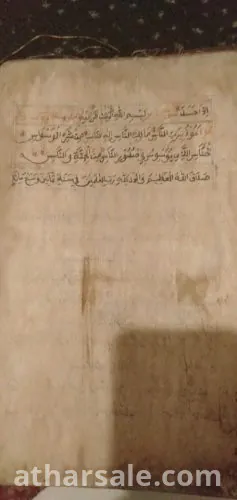 بسم الله الرحمن الرحيم
قل أعوذ برب الناس ملك الناس إله الناس من شر الوسواس
الخناس الذي يوسوس في صدور الناس من الجنة والناس
صدق الله العظيم والحمد لله رب العالمين
atharsale.com